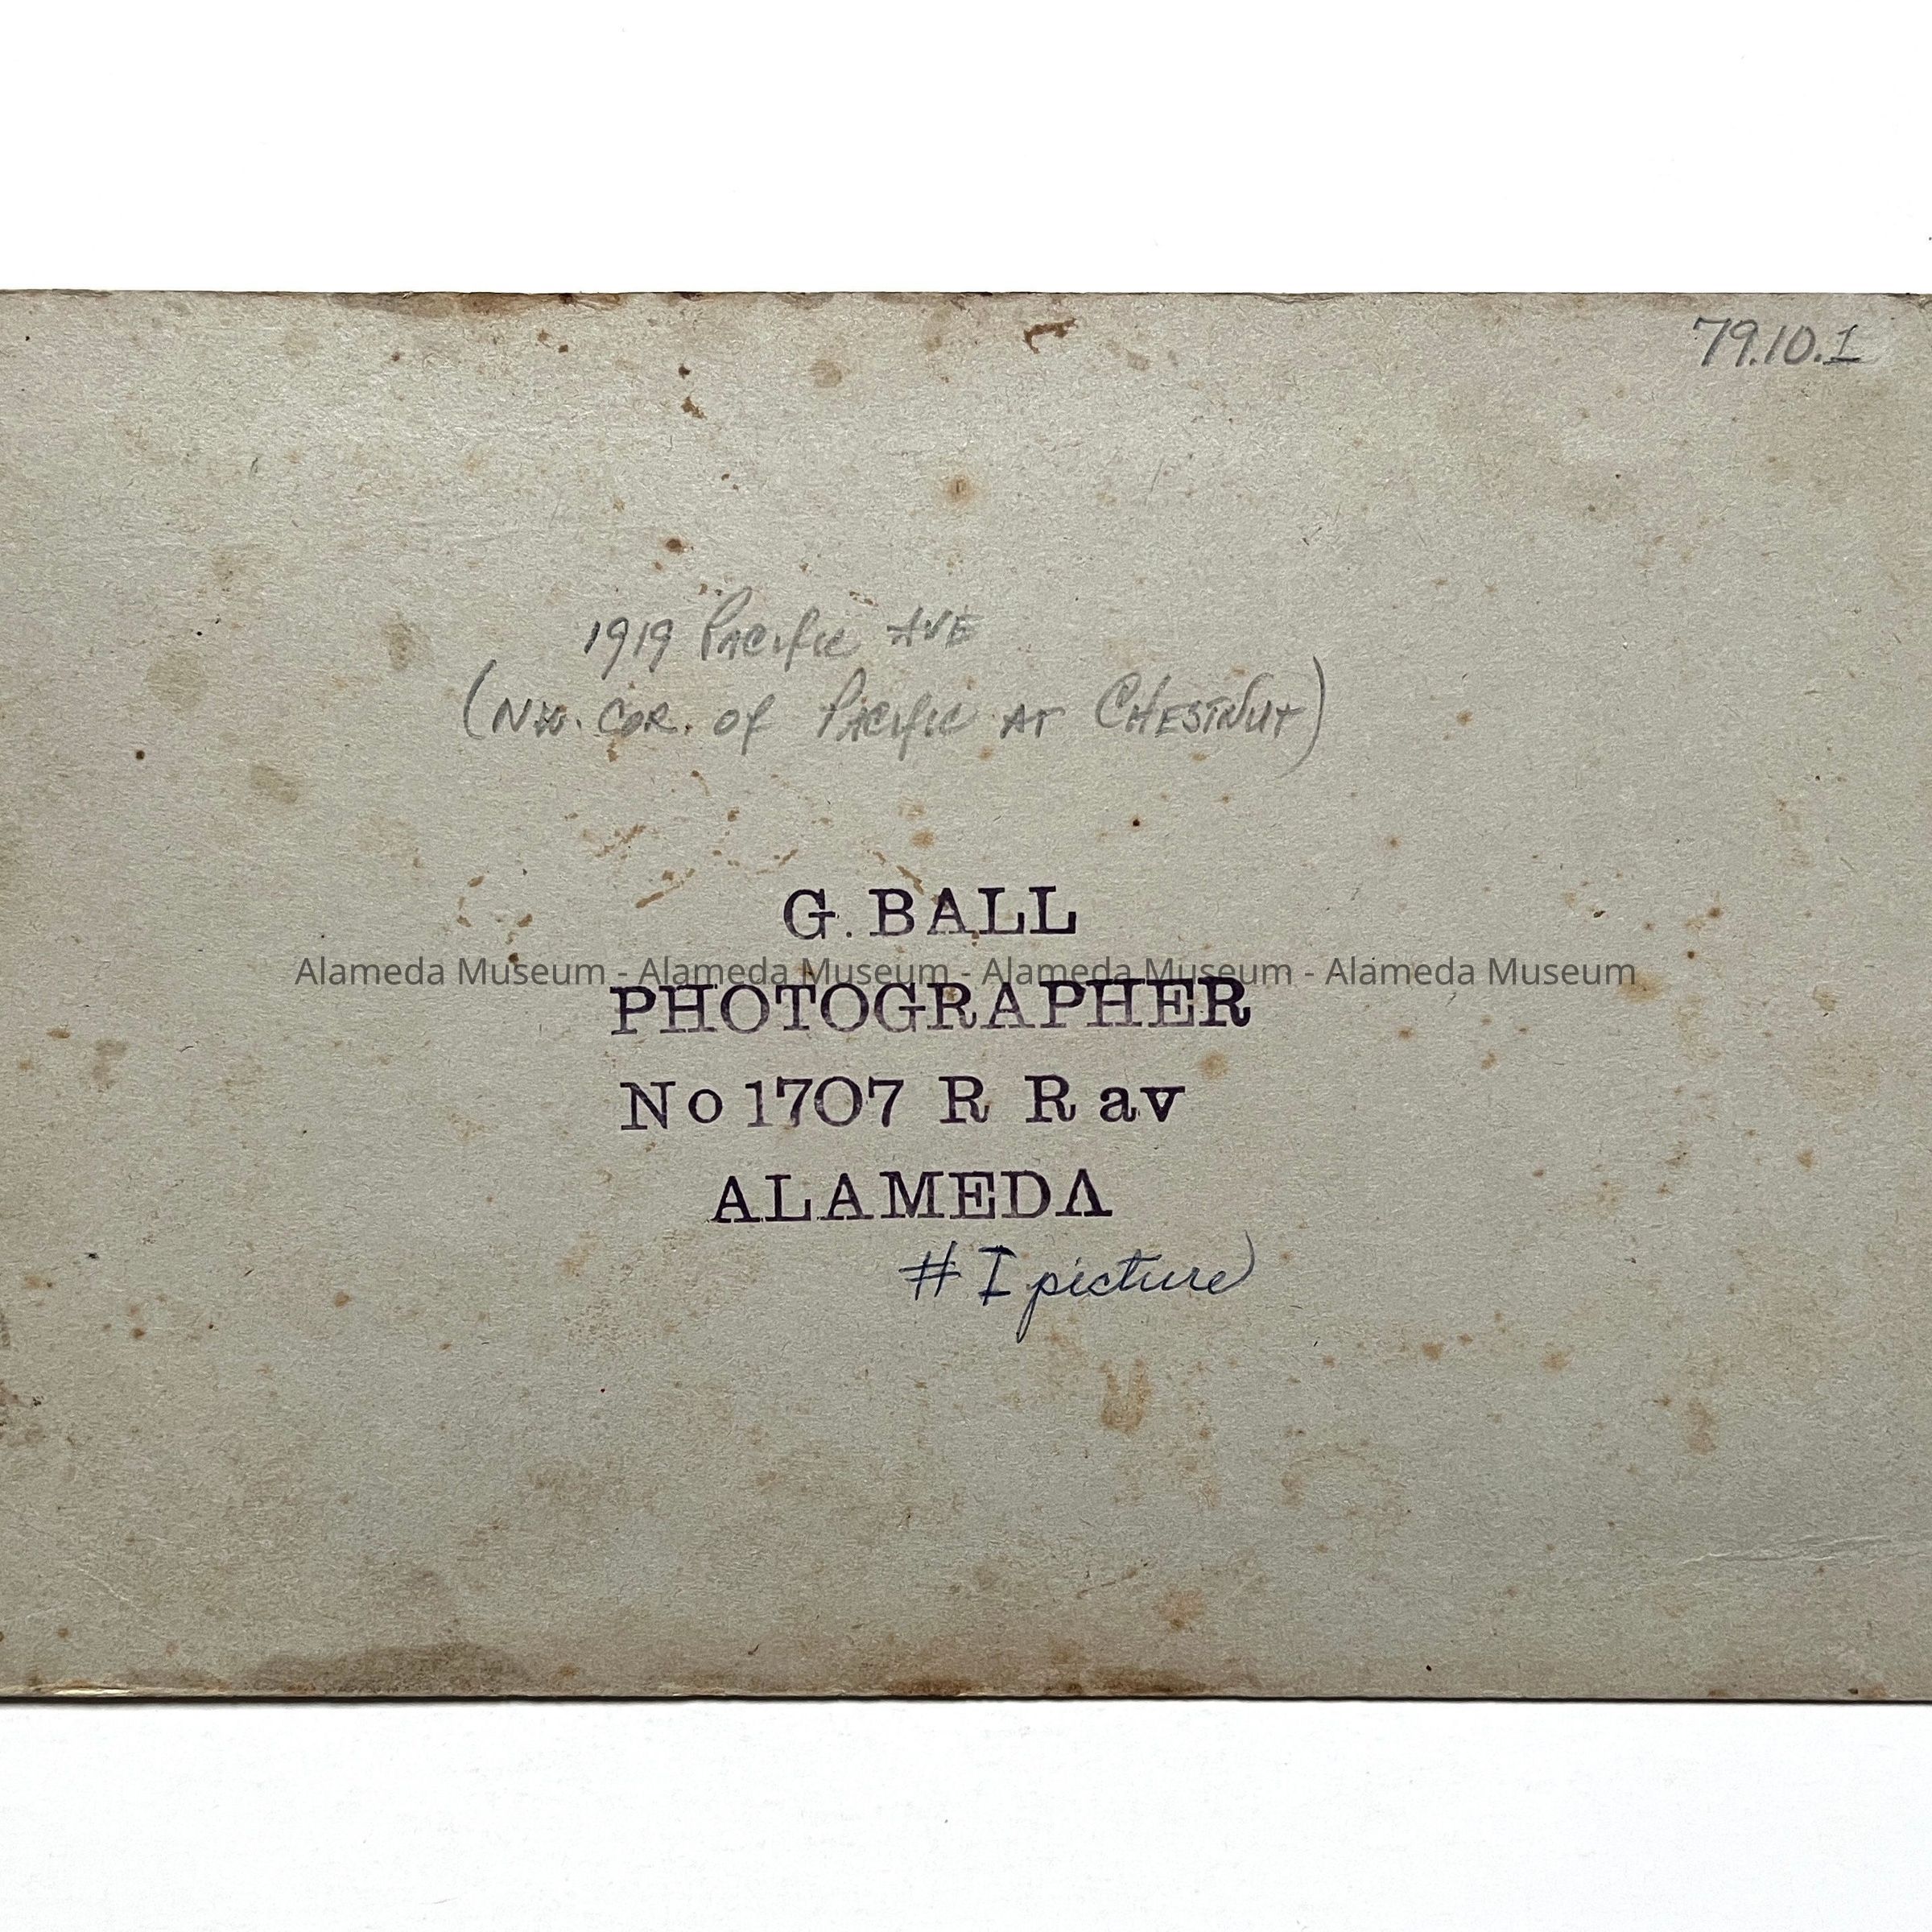 79.10.1
1919 Pacific AVE
(NW. COR. of Pacific AT CHESTNUT)
G. BALL
Alameda Museum - Alameda Museum - Alameda Museum - Alameda Museum
PHOTOGRAPHER
No 1707 R R av
ALAMEDA
# I picture